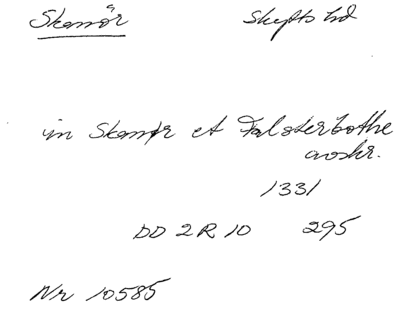 Skanör Skytts hd
in Skanør et Falsterbothe
avskr.
1331
DD 2 R 10 295
Nr 10585